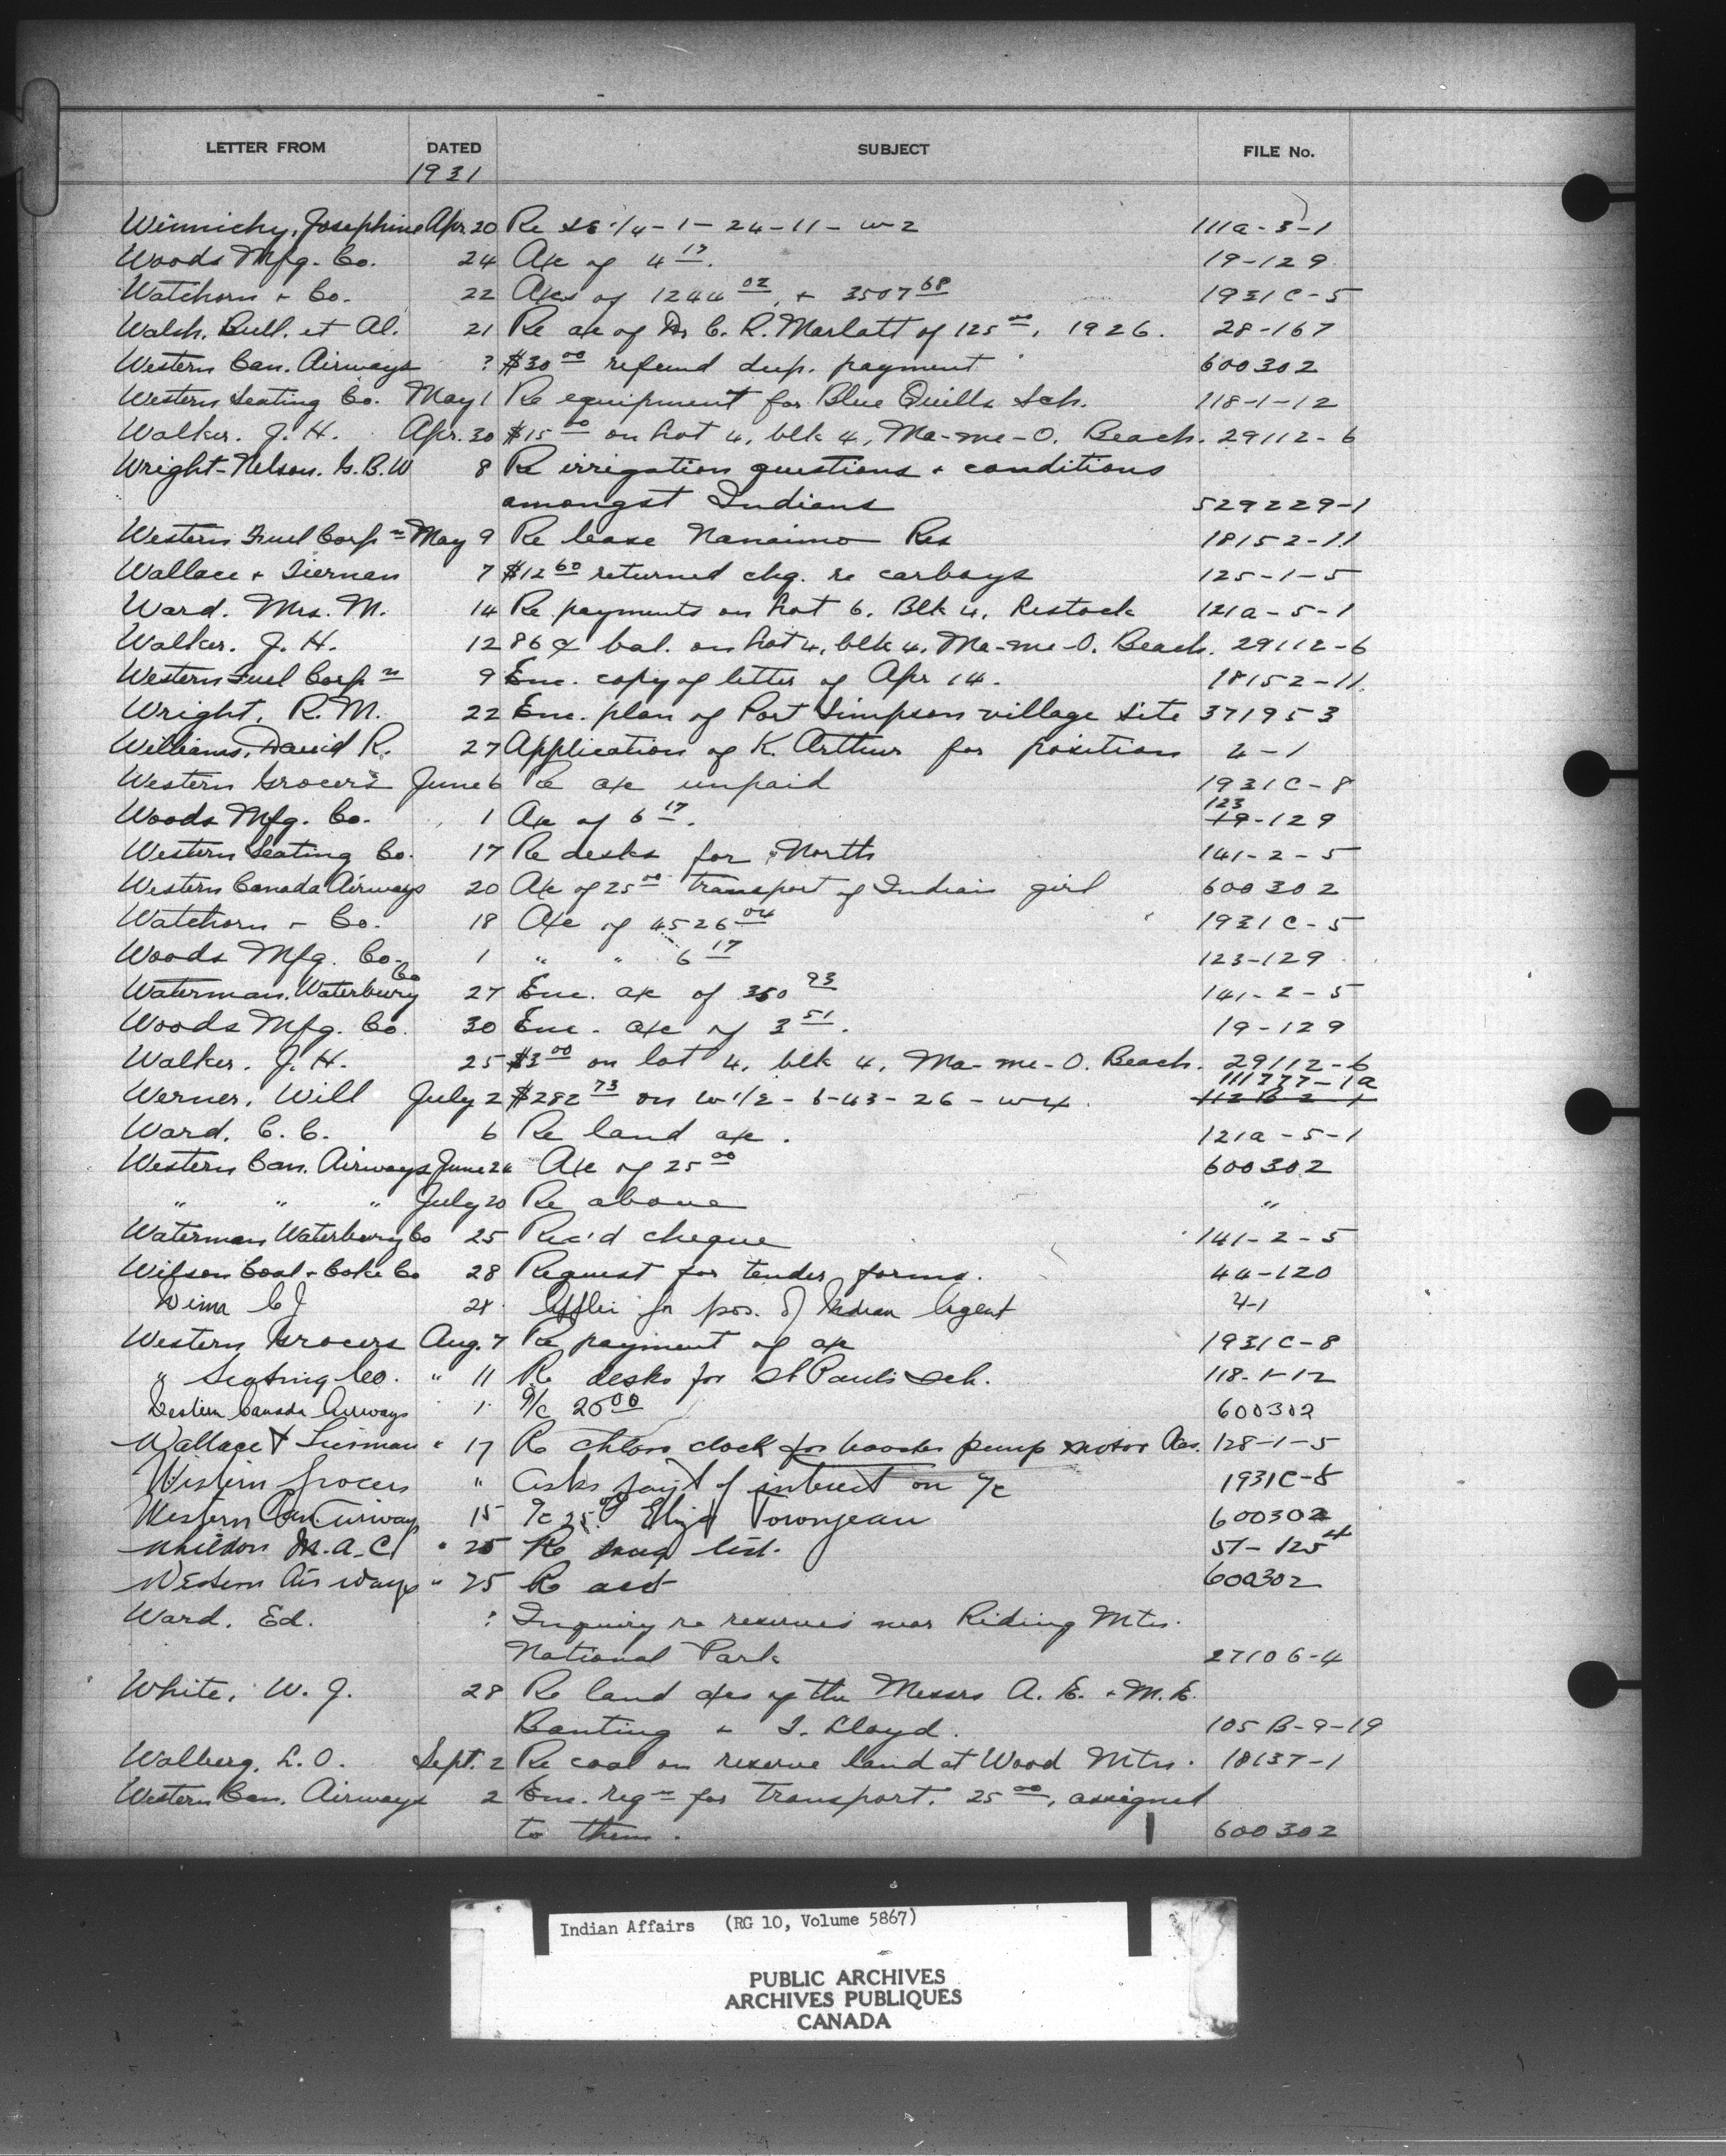 LETTER FROM DATED SUBJECT FILE No.
1931
Winnichy, Josephine Apr. 20 Re SE 1/4-1-24-11-w-2 111a-3-1
Woods Mfg. Co. 24 A/c of 4 17. 19-129
Watchorn + Co. 22 A/cs of 1244 02, + 3507 68 1931C-5
Walsh, Bull, et Al. 21 Re a/c of Dr C. R. Marlatt of 125 00, 1926. 28-167
Western Can. Airways ? $30 00 refund dup. payment 600302
Western Seating Co. May 1 Re equipment for Blue Quills Sch. 118-1-12
Walker. J. H. Apr. 30 $15 00 on Lot 4, blk 4, Ma-me-O. Beach. 29112-6
Wright-Nelson. G.B.W 8 Re irrigation questions + conditions
amongst Indians 529229-1
Western Fuel Corp n May 9 Re lease Nanaimo Res 18152-11
Wallace + Tiernan 7 $12 60 returned chg. re carboys 125-1-5
Ward. Mrs. M. 14 Re payments on Lot 6. Blk 4. Lestock 121a-5-1
Walker. J. H. 12 86¢ bal. on Lot 4, blk 4, Ma-me-O. Beach. 29112-6
Western Fuel Corp n 9 Enc. copy of letter of Apr 14. 18152-11.
Wright, R. M. 22 Enc. plan of Port Simpson village site 371953
Williams, David R. 27 Application of K. Arthur for position 4-1
Western Grocers June 6 Re a/c unpaid 1931C-8
123
Woods Mfg. Co. 1 A/c of 6 17. 19-129
Western Seating Co. 17 Re desks for North 141-2-5
Western Canada Airways 20 A/c of 25 00 transport of Indian girl 600302
Watchorn + Co. 18 A/c of 4526 04 1931C-5
Woods Mfg. Co. 1 " " 6 17 123-129
Waterman, Waterbury Co 27 Enc. a/c of 350 93 141-2-5
Woods Mfg. Co. 30 Enc. a/c of 3 51. 19-129
Walker. J. H. 25 $3 00 on lot 4, blk 4, Ma-me-O. Beach. 29112-6
111777-1a
Werner, Will July 2 $282 73 on w 1/2-6-43-26-w4 112B-2-1
Ward. C. C. 6 Re land a/c. 121a-5-1
Western Can. Airways June 24 A/c of 25 00 600302
" " " July 20 Re above "
Waterman Waterbury Co 25 Rec'd cheque 141-2-5
Wilson Coal + Coke Co 28 Request for tender forms. 44-120
C J 24 for pos. of Indian Agent 4-1
Western Grocers Aug. 7 Re payment of a/c 1931C-8
" Seating Co. " 11 Re desks for St Pauls Sch. 118-1-12
Western Canada Airways 1 A/c 25 00 600302
Wallace & Tiernan " 17 Re clock for booster pump motor 128-1-5
Western Grocers " Asks pay't of interest on a/c 1931C-8
Western Can. Airways 15 A/c 25 00 600302
M.A.C. " 25 Re drug list. 51-125 4
Western Air ways " 25 Re acct 600302
Ward. Ed. ? Inquiry re reserves near Riding Mtn.
National Park 27106-4
White, W. J. 28 Re land a/cs of the Messrs A. E. + M. E.
Banting + T. Lloyd. 105 B-9-19
Walberg, L. O. Sept. 2 Re coal on reserve land at Wood Mtn. 18137-1
Western Can. Airways 2 Enc. reqn for transport. 25 00, assigned
to them. 600302
Indian Affairs (RG 10, Volume 5867)
PUBLIC ARCHIVES
ARCHIVES PUBLIQUES
CANADA